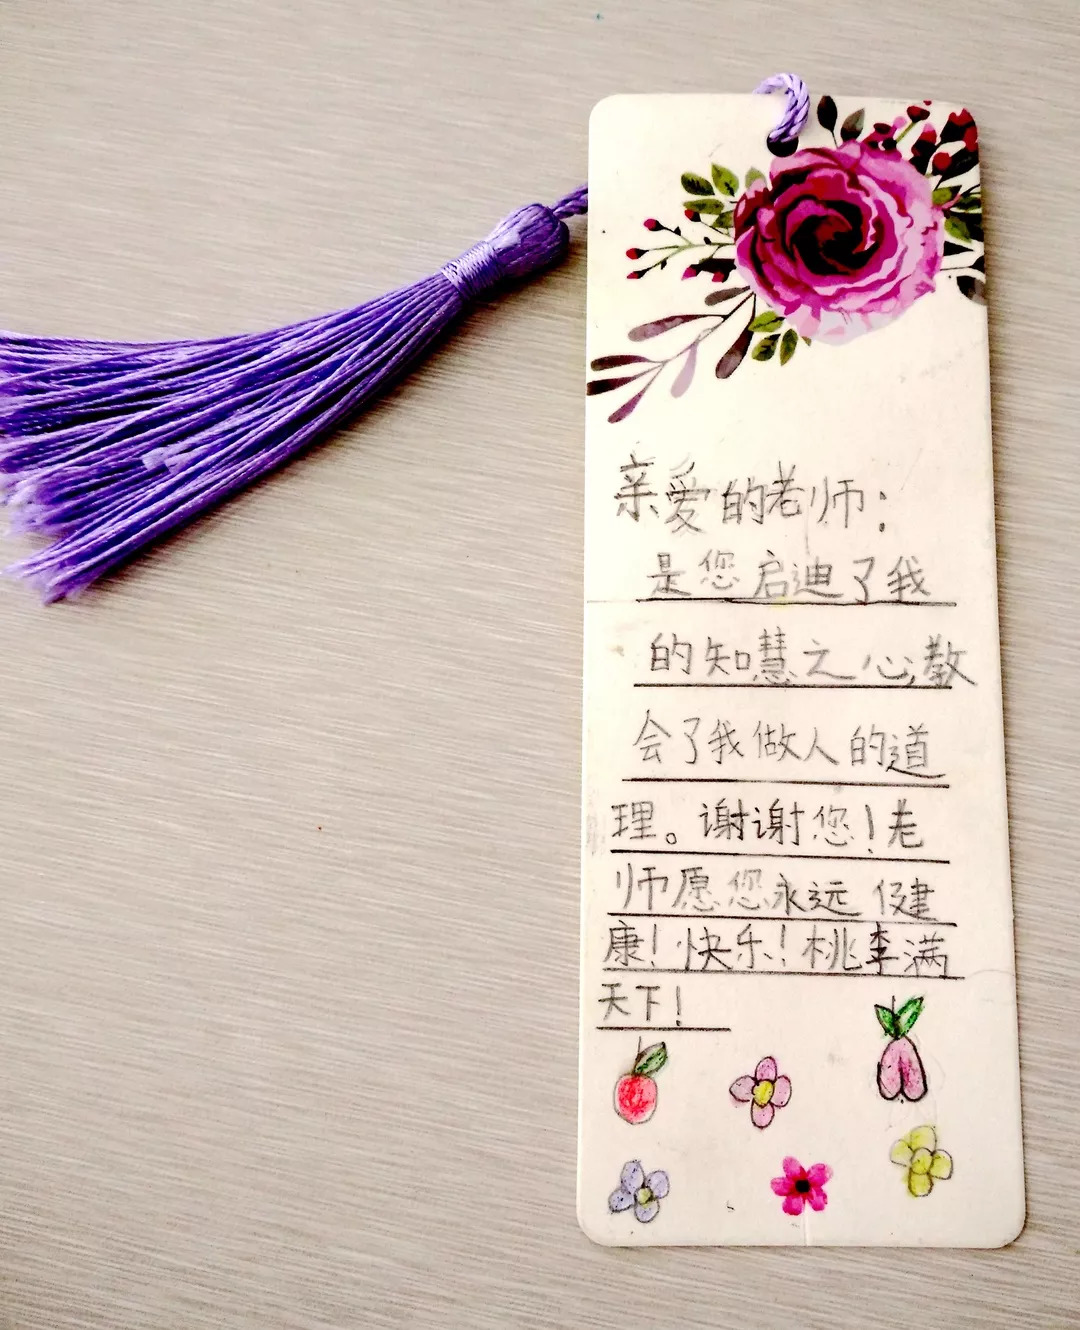 亲爱的老师：
是您启迪了我
的知慧之心,教
会了我做人的道
理。谢谢您！老
师愿您永远健
康！快乐！桃李满
天下！